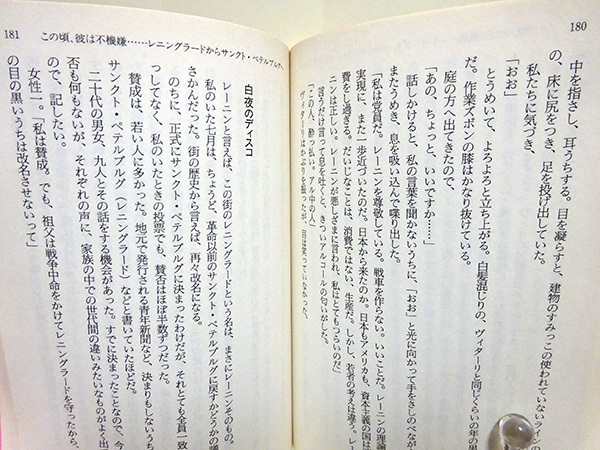 180
中を指さし、耳うちする。目を凝らすと、建物のすみっこの使われていないラインの
の、床に尻をつき、足を投げ出していた。
私たちに気づき、
「おお」
とうめいて、よろよろと立ち上がる。白髪混じりの、ヴィターリと同じくらいの年の男
だ。作業ズボンの膝はかなり抜けている。
庭の方へ出てきたので、
「あの、ちょっと、いいですか……」
話しかけると、私の言葉を聞かないうちに、「おお」と光に向かって手をさしのべなが
またうめき、息を吸い込んで喋り出した。
「私は党員だ。レーニンを尊敬している。戦車を作らない。いいことだ。レーニンの理論
実現に、また一歩近づいたのだ。日本から来たのか。日本もアメリカも、資本主義の国は
費をし過ぎる。だいじなことは、消費ではない、生産だ。しかし、若者の考えは違う。レー
ニンは正しい。レーニンが悪しざまに言われ、私はとてもつらいのだ」
言うだけ言って息を吐くと、きついアルコールの匂いがした。
「この人、酔っ払い。アル中の人」
ヴィターリはかぶりを振ったが、目は笑っていなかった。
181
この頃、彼は不機嫌……レニングラードからサンクト・ペテルブルグへ
白夜のディスコ
レーニンと言えば、この街のレニングラードという名は、まさにレーニンそのもの。
私のいた七月は、ちょうど、革命以前のサンクト・ペテルブルグに戻すかどうかの議
さかんだった。街の歴史から言えば、再々改名になる。
のちに、正式にサンクト・ペテルブルグに決まったわけだが、それとても全員一致
ってなく、私のいたときの投票でも、賛否はほぼ半数ずつだった。
賛成は、若い人に多かった。地元で発行される青年新聞など、決まりもしないうち
サンクト・ペテルブルグ(レニングラード)などと書いていたほどだ。
二十代の男女、九人とその話をする機会があった。すでに決まったことなので、今
否も何もないが、それぞれの声に、家族の中での世代間の違いみたいなものがよく出
ので、記したい。
女性一。「私は賛成。でも、祖父は戦争中命をかけてレニングラードを守ったから、
の目の黒いうちは改名させないって」